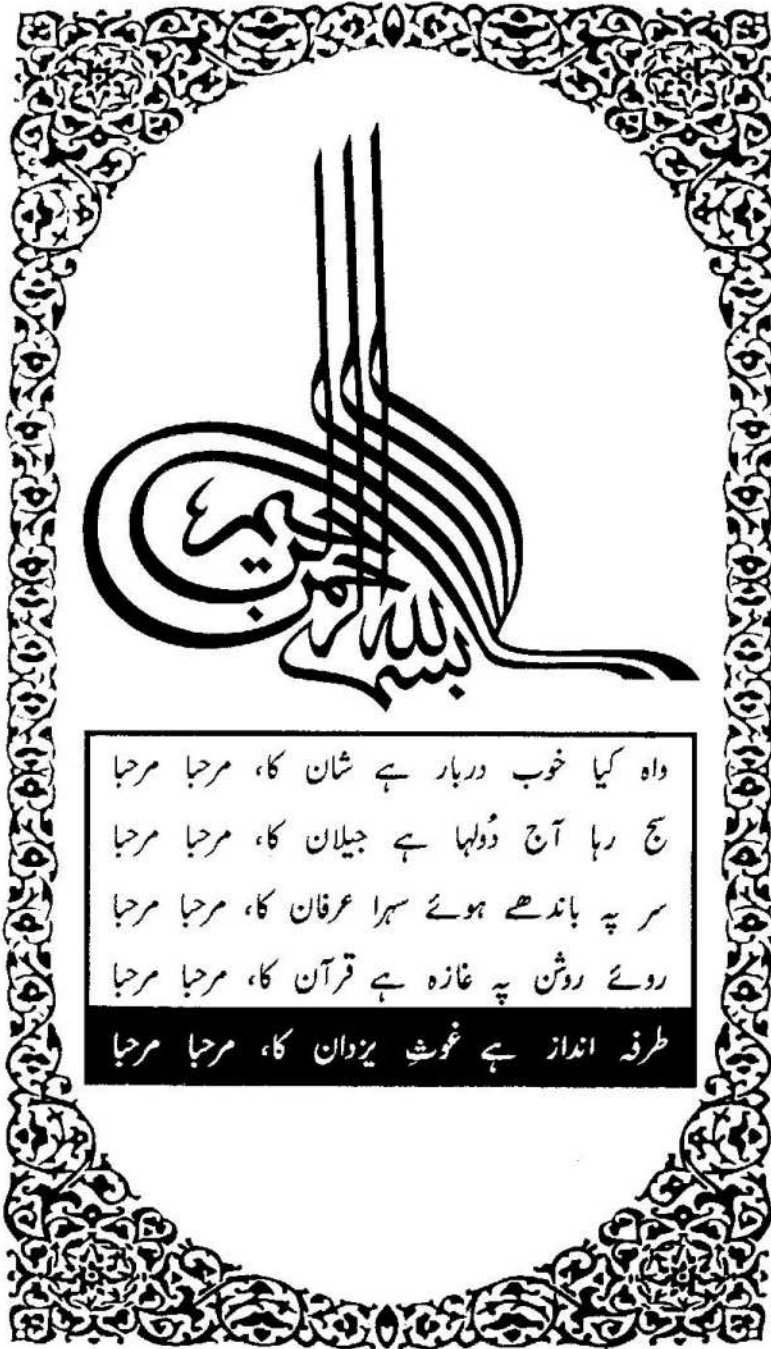 بسم الله الرحمن الرحيم
واہ کیا خوب دربار ہے شان کا، مرحبا مرحبا
سج رہا آج دُولہا ہے جیلان کا، مرحبا مرحبا
سر پہ باندھے ہوئے سہرا عرفان کا، مرحبا مرحبا
روئے روشن پہ غازہ ہے قرآن کا، مرحبا مرحبا
طرفہ انداز ہے غوثِ یزدان کا، مرحبا مرحبا